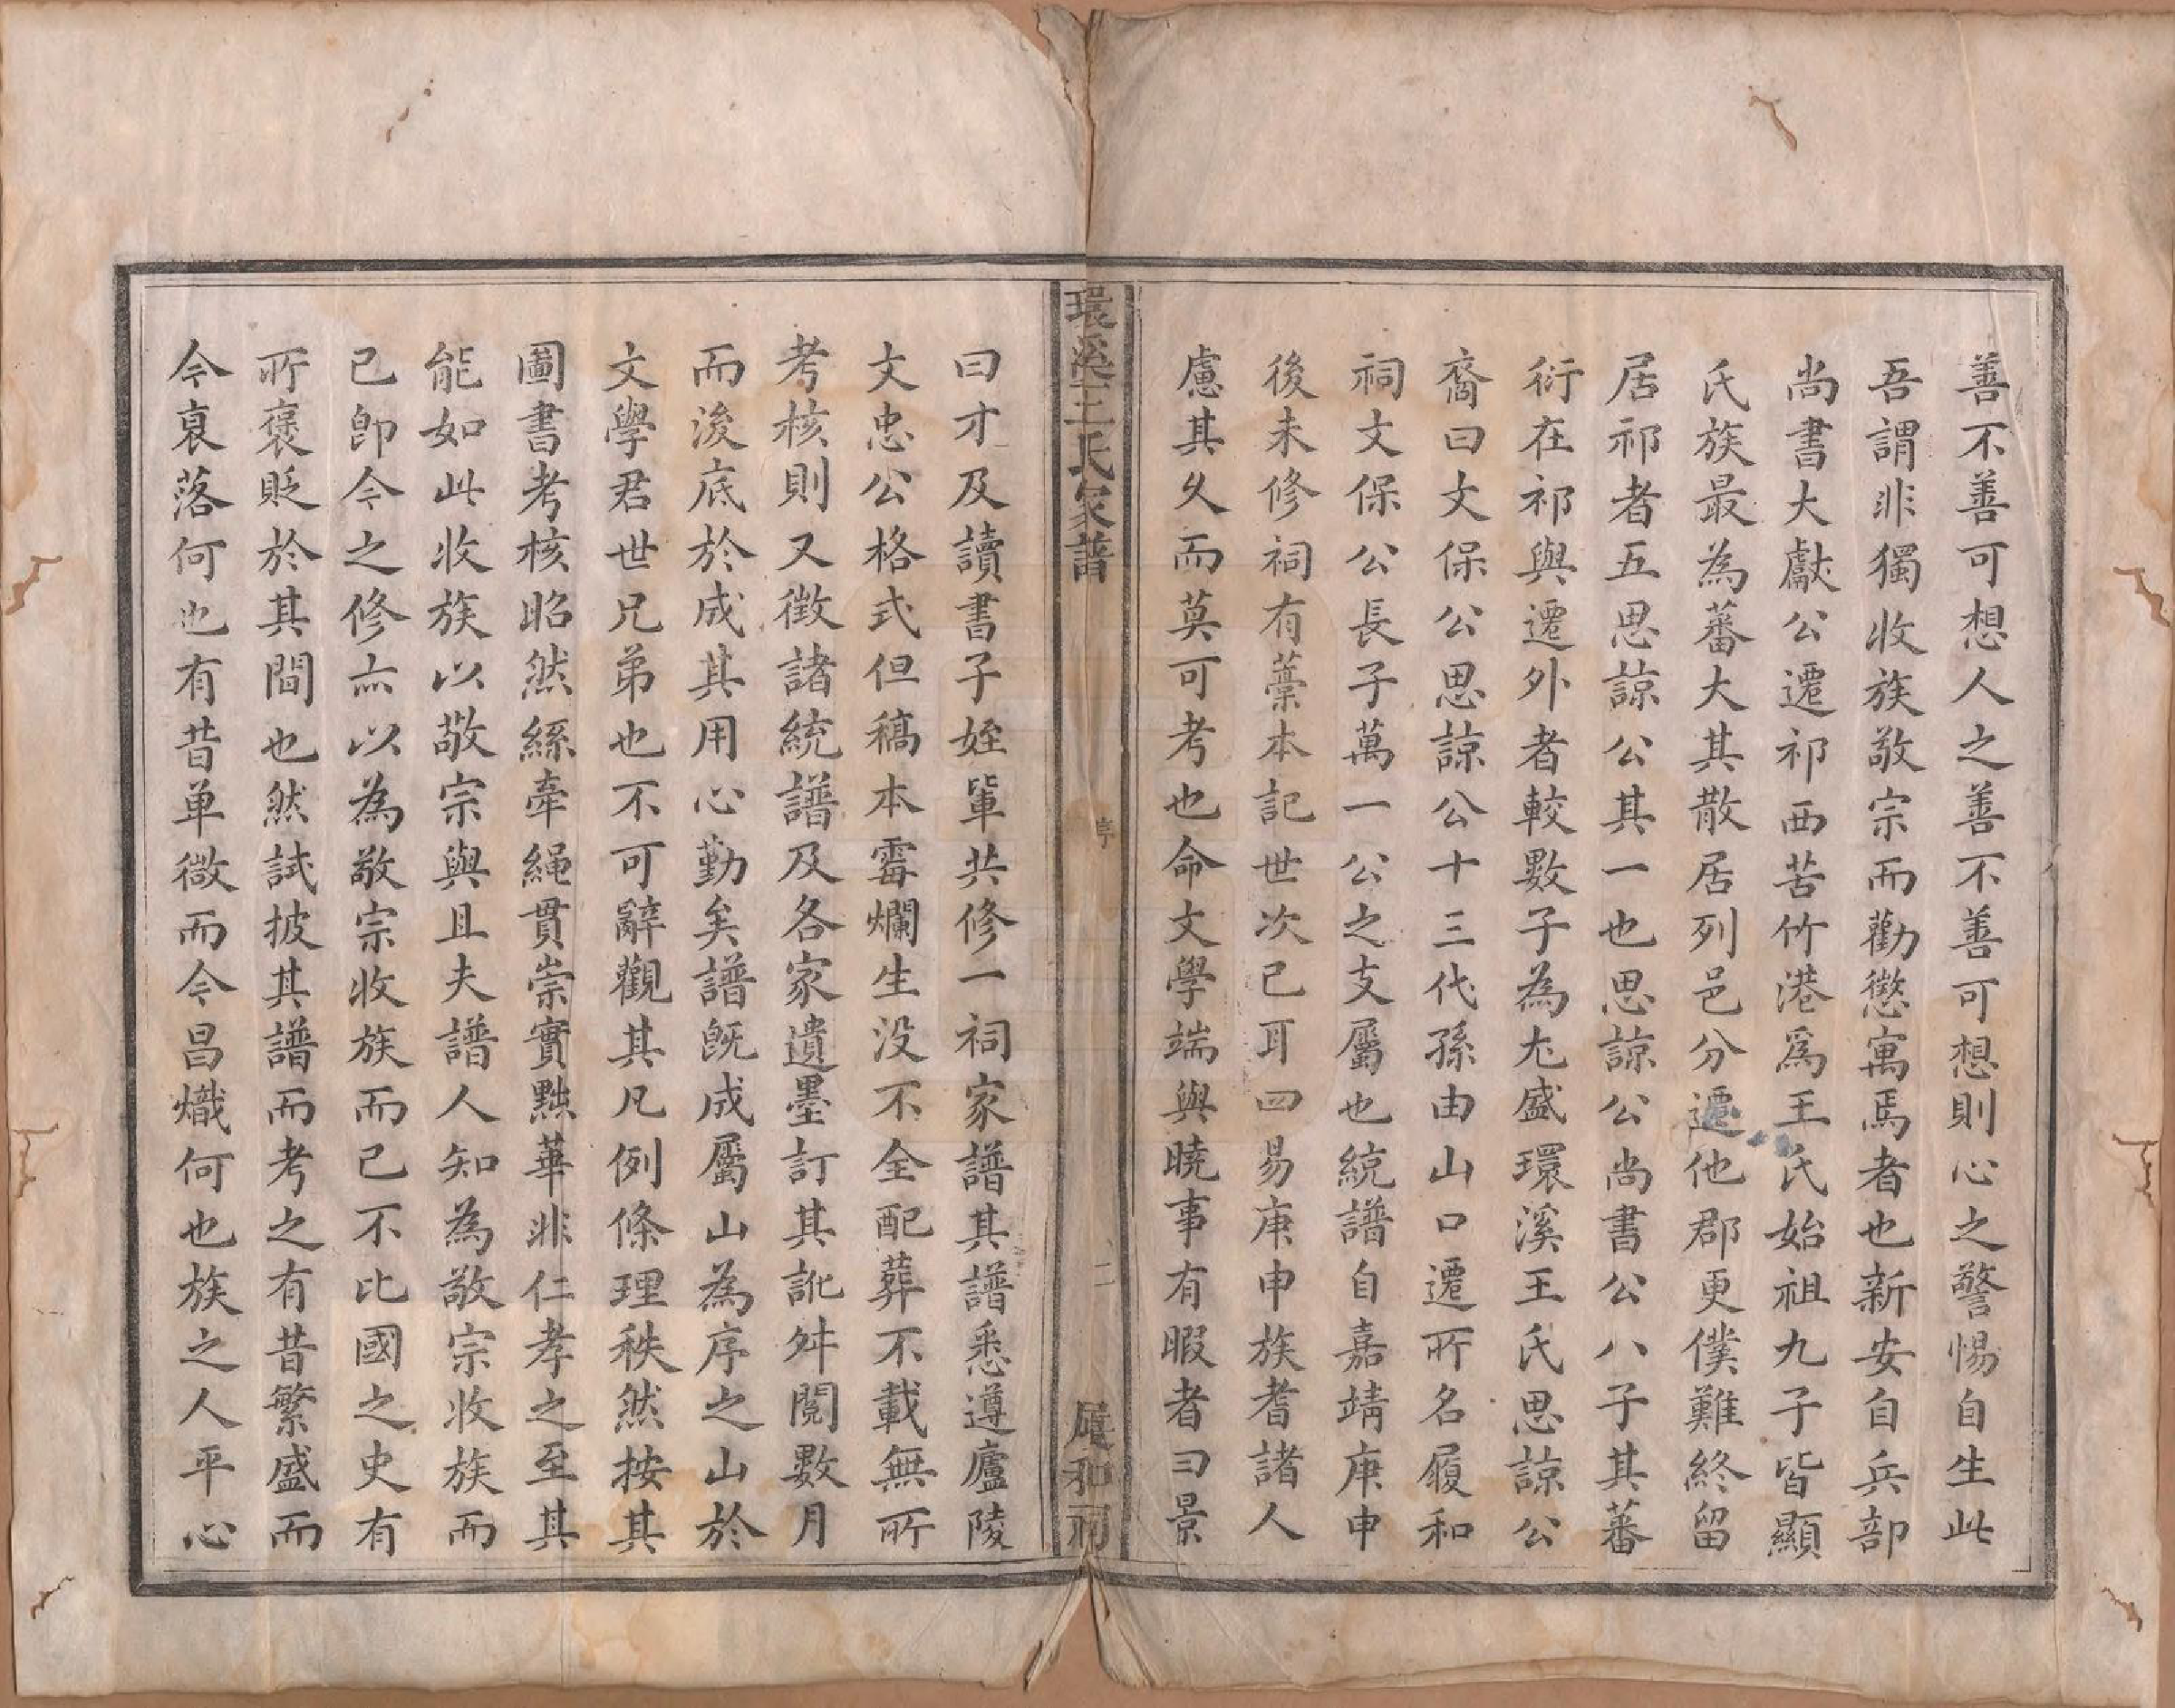 善不善可想人之善不善可想則心之警惕自生此
吾謂非獨收族敬宗而勸懲寓焉者也新安自兵部
尚書大獻公遷祁西苦竹港爲王氏始祖九子皆顯
氏族最為蕃大其散居列邑分遷他郡更僕難終留
居祁者五思諒公其一也思諒公尚書公八子其蕃
衍在祁與遷外者較數子為尢盛環溪王氏思諒公
裔曰文保公思諒公十三代孫由山口遷所名履和
祠文保公長子萬一公之支屬也統譜自嘉靖庚申
後未修祠有藁本記世次已耳四易庚申族耆諸人
慮其久而莫可考也命文學端與曉事有暇者曰景
環溪王氏家譜
序
二
履和祠
曰才及讀書子姪軰共修一祠家譜其譜悉遵廬陵
文忠公格式但稿本霉爛生没不全配葬不載無所
考核則又徵諸統譜及各家遺墨訂其訛舛閱數月
而浚底於成其用心勤矣譜旣成屬山為序之山於
文學君世兄弟也不可辭觀其凡例條理秩然按其
圖書考核昭然絲牽繩貫崇實黜華非仁孝之至其
能如此收族以敬宗與且夫譜人知為敬宗收族而
已卽今之修亦以為敬宗收族而已不比國之史有
所褒貶於其間也然試披其譜而考之有昔繁盛而
今衰落何也有昔单微而今昌熾何也族之人平心